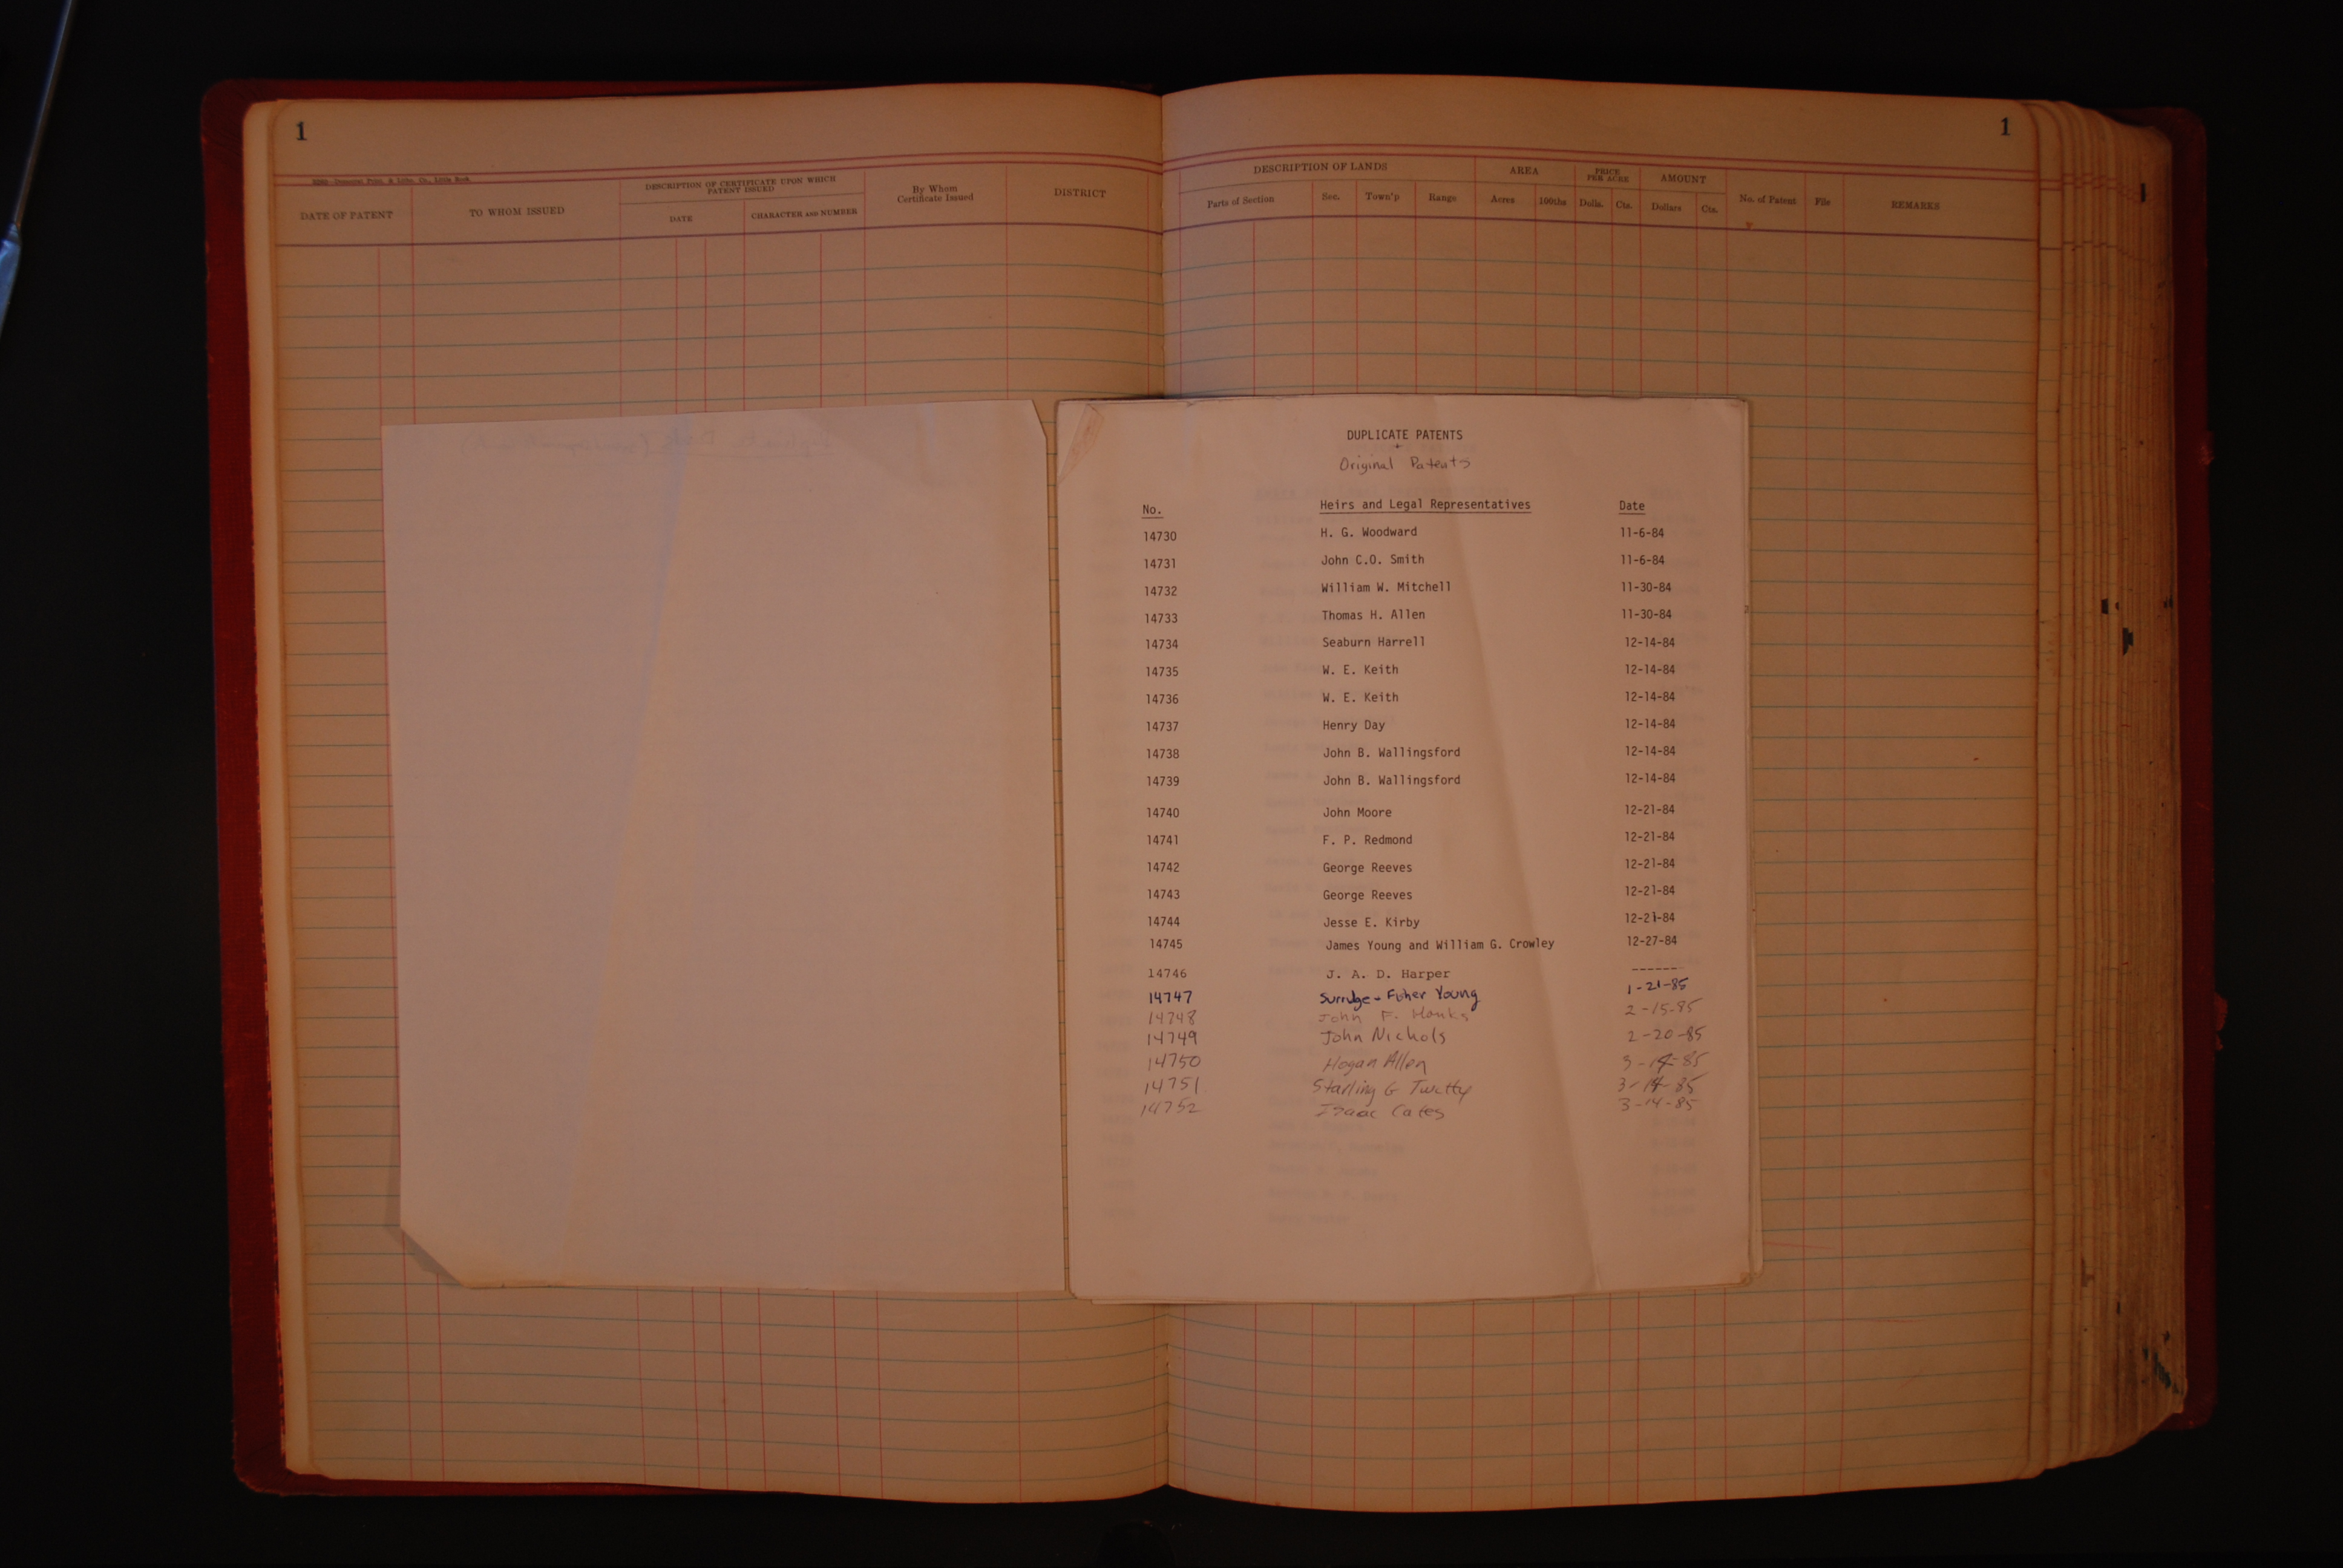 1
1
DATE OF PATENT
TO WHOM ISSUED
DESCRIPTION OF CERTIFICATE UPON WHICH
PATENT ISSUED
DATE
CHARACTER AND NUMBER
By Whom
Certificate Issued
DISTRICT
DESCRIPTION OF LANDS
Parts of Section
Sec.
Town'p
Range
AREA
Acres
100ths
PRICE
PER ACRE
Dolls.
Cts.
AMOUNT
Dollars
Cts.
No. of Patent
File
REMARKS
DUPLICATE PATENTS
+
Original Patents
No. Heirs and Legal Representatives Date
14730 H. G. Woodward 11-6-84
14731 John C.O. Smith 11-6-84
14732 William W. Mitchell 11-30-84
14733 Thomas H. Allen 11-30-84
14734 Seaburn Harrell 12-14-84
14735 W. E. Keith 12-14-84
14736 W. E. Keith 12-14-84
14737 Henry Day 12-14-84
14738 John B. Wallingsford 12-14-84
14739 John B. Wallingsford 12-14-84
14740 John Moore 12-21-84
14741 F. P. Redmond 12-21-84
14742 George Reeves 12-21-84
14743 George Reeves 12-21-84
14744 Jesse E. Kirby 12-21-84
14745 James Young and William G. Crowley 12-27-84
14746 J. A. D. Harper ------
14747 Young 1-21-85
14748 John F. Hanks 2-15-85
14749 John Nichols 2-20-85
14750 Hogan Allen 3-14-85
14751 Starling G Twitty 3-14-85
14752 Isaac Cates 3-14-85